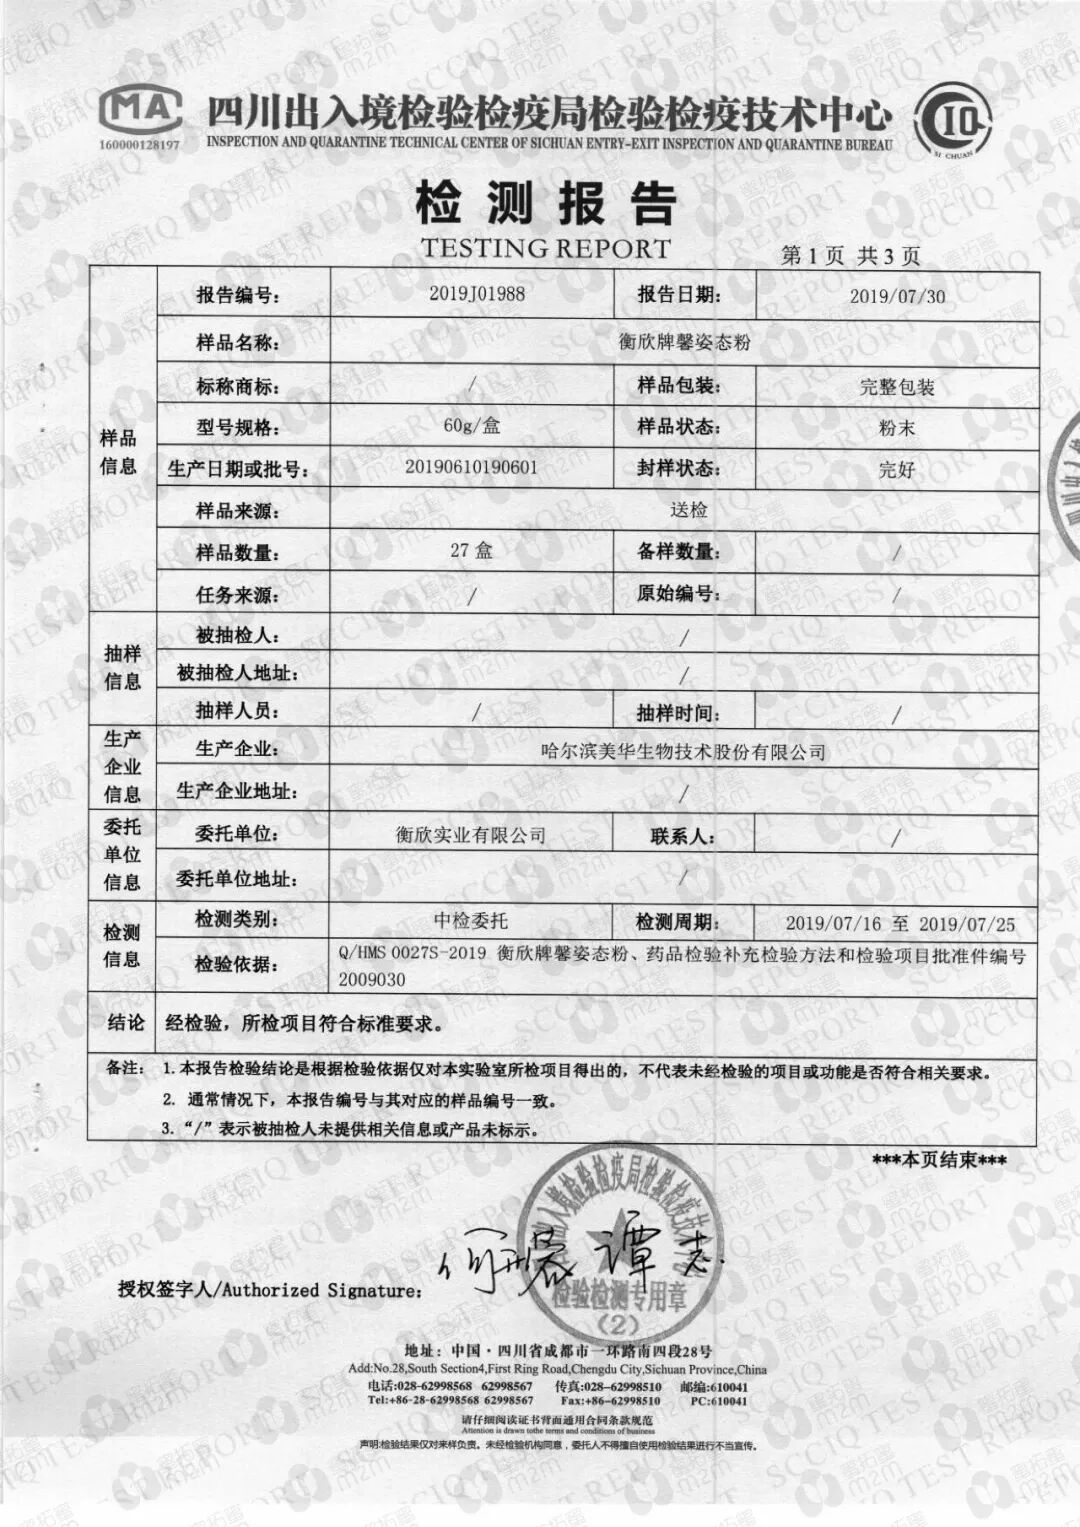 MA
160000128197
四川出入境检验检疫局检验检疫技术中心
INSPECTION AND QUARANTINE TECHNICAL CENTER OF SICHUAN ENTRY-EXIT INSPECTION AND QUARANTINE BUREAU
CIQ
SI CHUAN
检测报告
TESTING REPORT
第1页 共3页
样品信息
报告编号: 2019J01988 报告日期: 2019/07/30
样品名称: 衡欣牌馨姿态粉
标称商标: / 样品包装: 完整包装
型号规格: 60g/盒 样品状态: 粉末
生产日期或批号: 20190610190601 封样状态: 完好
样品来源: 送检
样品数量: 27盒 备样数量: /
任务来源: / 原始编号: /
抽样信息
被抽检人: /
被抽检人地址: /
抽样人员: / 抽样时间: /
生产企业信息
生产企业: 哈尔滨美华生物技术股份有限公司
生产企业地址: /
委托单位信息
委托单位: 衡欣实业有限公司 联系人: /
委托单位地址: /
检测信息
检测类别: 中检委托 检测周期: 2019/07/16 至 2019/07/25
检验依据: Q/HMS 0027S-2019 衡欣牌馨姿态粉、药品检验补充检验方法和检验项目批准件编号
2009030
结论 经检验，所检项目符合标准要求。
备注: 1.本报告检验结论是根据检验依据仅对本实验室所检项目得出的，不代表未经检验的项目或功能是否符合相关要求。
2. 通常情况下，本报告编号与其对应的样品编号一致。
3. “/”表示被抽检人未提供相关信息或产品未标示。
***本页结束***
授权签字人/Authorized Signature:
检验检测专用章
(2)
地址：中国·四川省成都市一环路南四段28号
Add:No.28,South Section4,First Ring Road,Chengdu City,Sichuan Province,China
电话:028-62998568 62998567 传真:028-62998510 邮编:610041
Tel:+86-28-62998568 62998567 Fax:+86-62998510 PC:610041
请仔细阅读证书背面通用合同条款规范
Attention is drawn tothe terms and conditions of business
声明:检验结果仅对来样负责。未经检验机构同意，委托人不得擅自使用检验结果进行不当宣传。